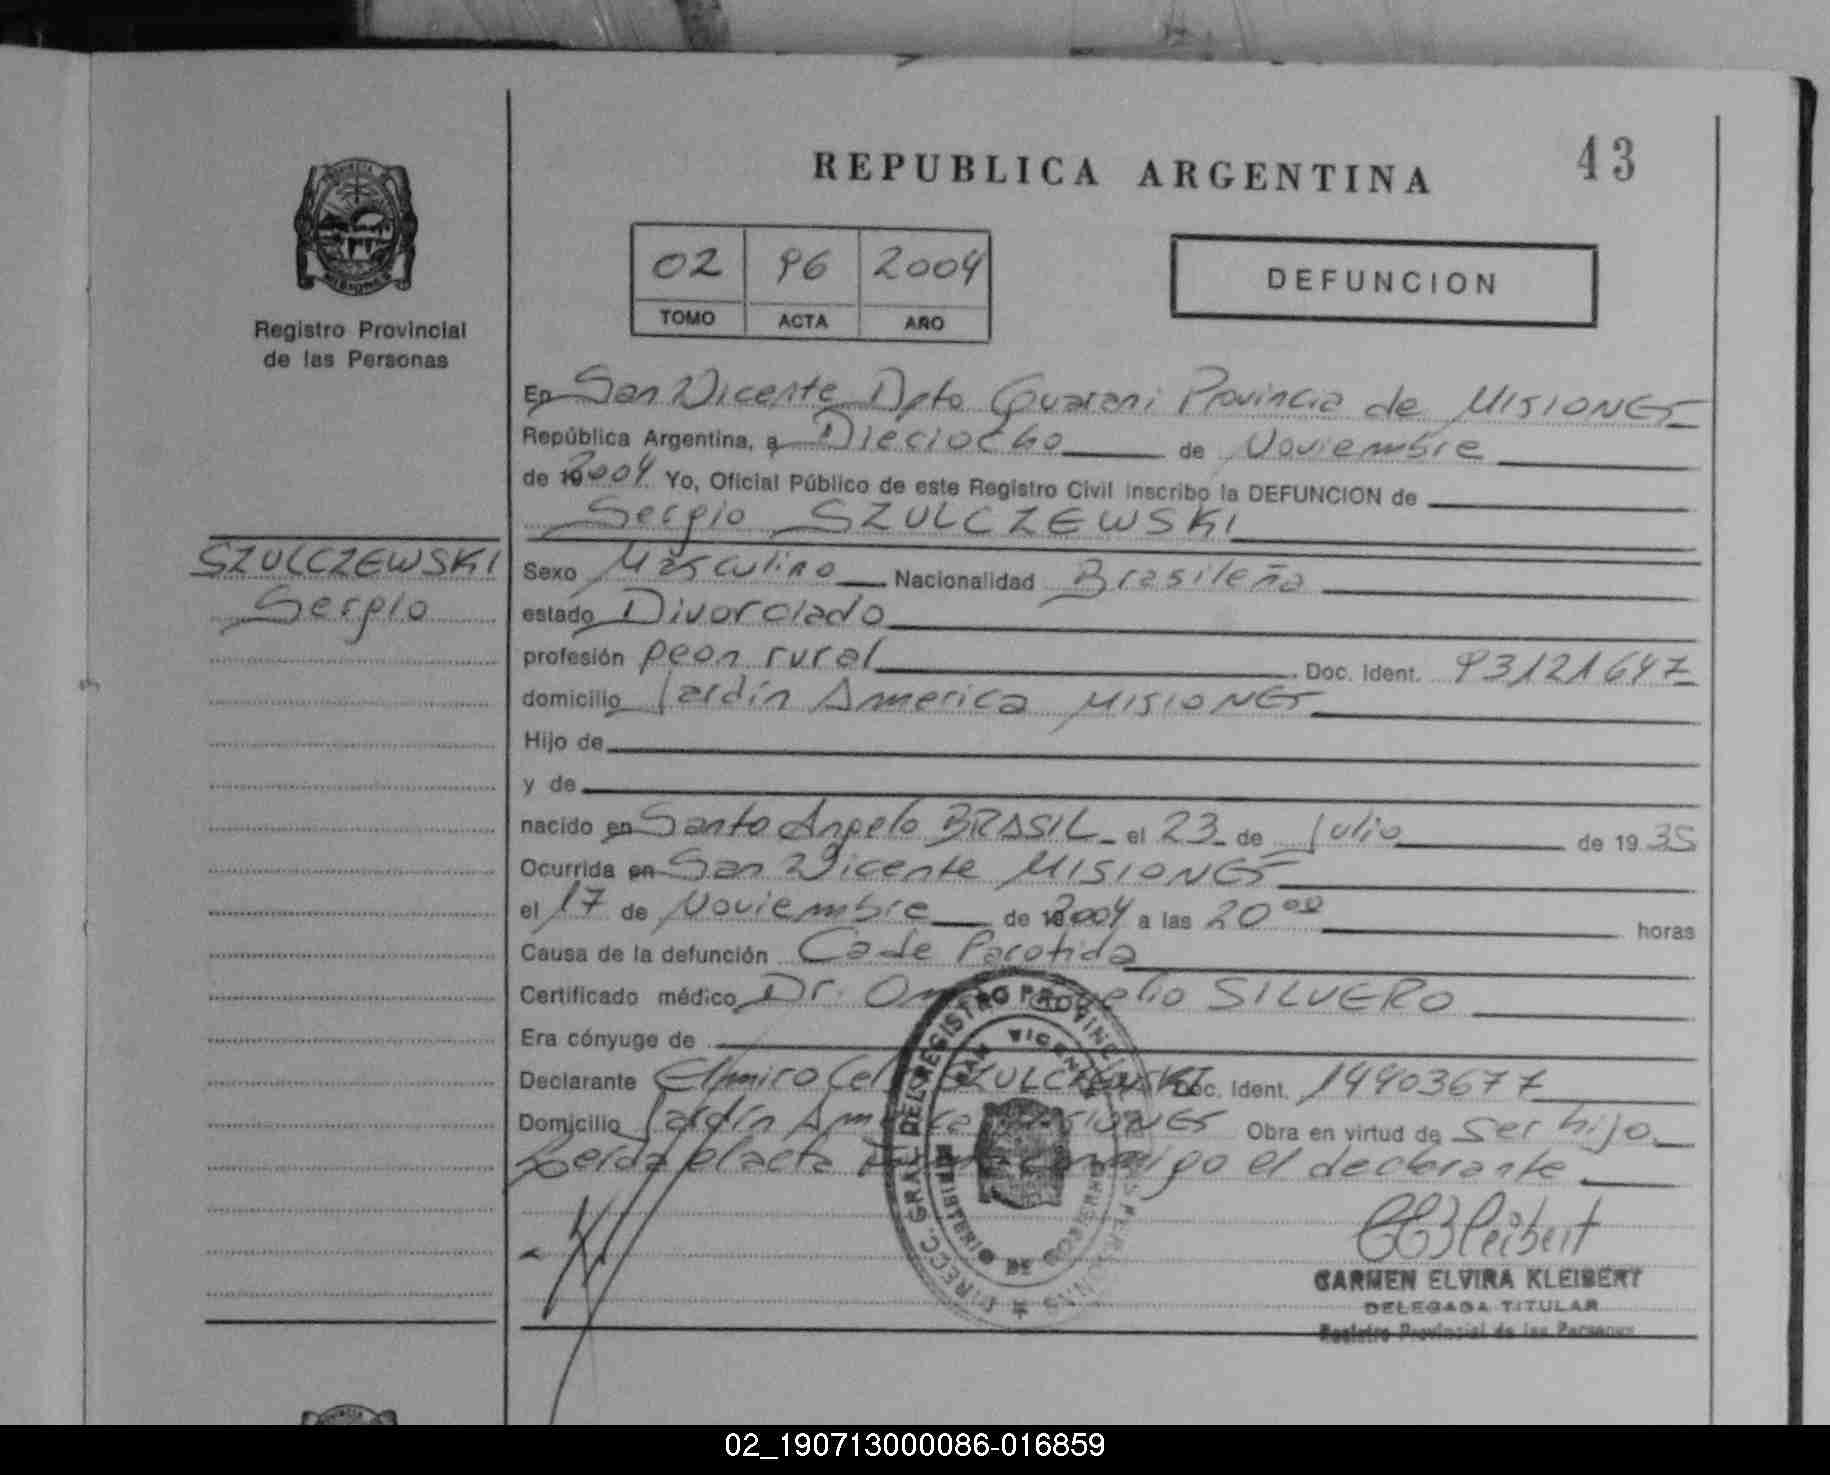 REPUBLICA ARGENTINA
43
Registro Provincial
de las Personas
02 96 2004
TOMO ACTA AÑO
DEFUNCION
SZULCZEWSKI
Sergio
En San Vicente Dpto Guarani Provincia de MISIONES
República Argentina, a Dieciocho de Noviembre
de 2004 Yo, Oficial Público de este Registro Civil inscribo la DEFUNCION de
Sergio SZULCZEWSKI
Sexo Masculino Nacionalidad Brasileña
estado Divorciado
profesión peon rural Doc. Ident. 93121647
domicilio Jardín America MISIONES
Hijo de
y de
nacido en Santo Angelo BRASIL el 23 de Julio de 1935
Ocurrida en San Vicente MISIONES
el 17 de Noviembre de 2004 a las 20 00 horas
Causa de la defunción Ca de Parotida
Certificado médico Dr. SILVERO
Era cónyuge de
Declarante Elmiro SZULCZEWSKI Doc. Ident. 14903677
Domicilio Jardín America MISIONES Obra en virtud de ser hijo
Leida el acta conmigo el declarante
DIRECC. GRAL. DEL REGISTRO PROVINCIAL PERSONAS
SAN VICENTE
MINISTERIO DE GOBIERNO
CEKleibert
CARMEN ELVIRA KLEIBERT
DELEGADA TITULAR
Registro Provincial de las Personas
02_190713000086-016859